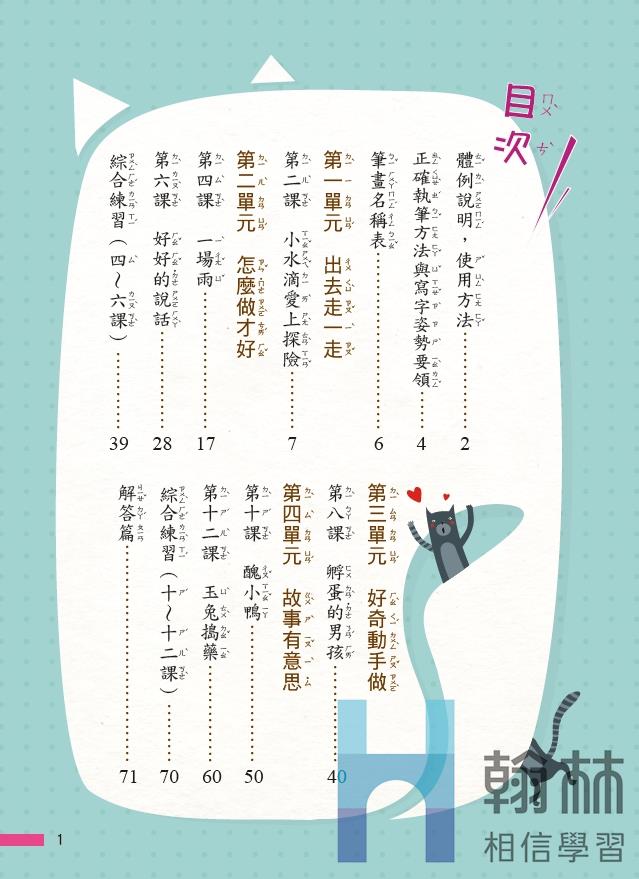 目次
體例說明，使用方法 2
正確執筆方法與寫字姿勢要領 4
筆畫名稱表 6
第一單元　出去走一走
第二課　小水滴愛上探險 7
第二單元　怎麼做才好
第四課　一場雨 17
第六課　好好的說話 28
綜合練習（四～六課） 39
第三單元　好奇動手做
第八課　孵蛋的男孩 40
第四單元　故事有意思
第十課　醜小鴨 50
第十二課　玉兔搗藥 60
綜合練習（十～十二課） 70
解答篇 71
翰林
相信學習
1